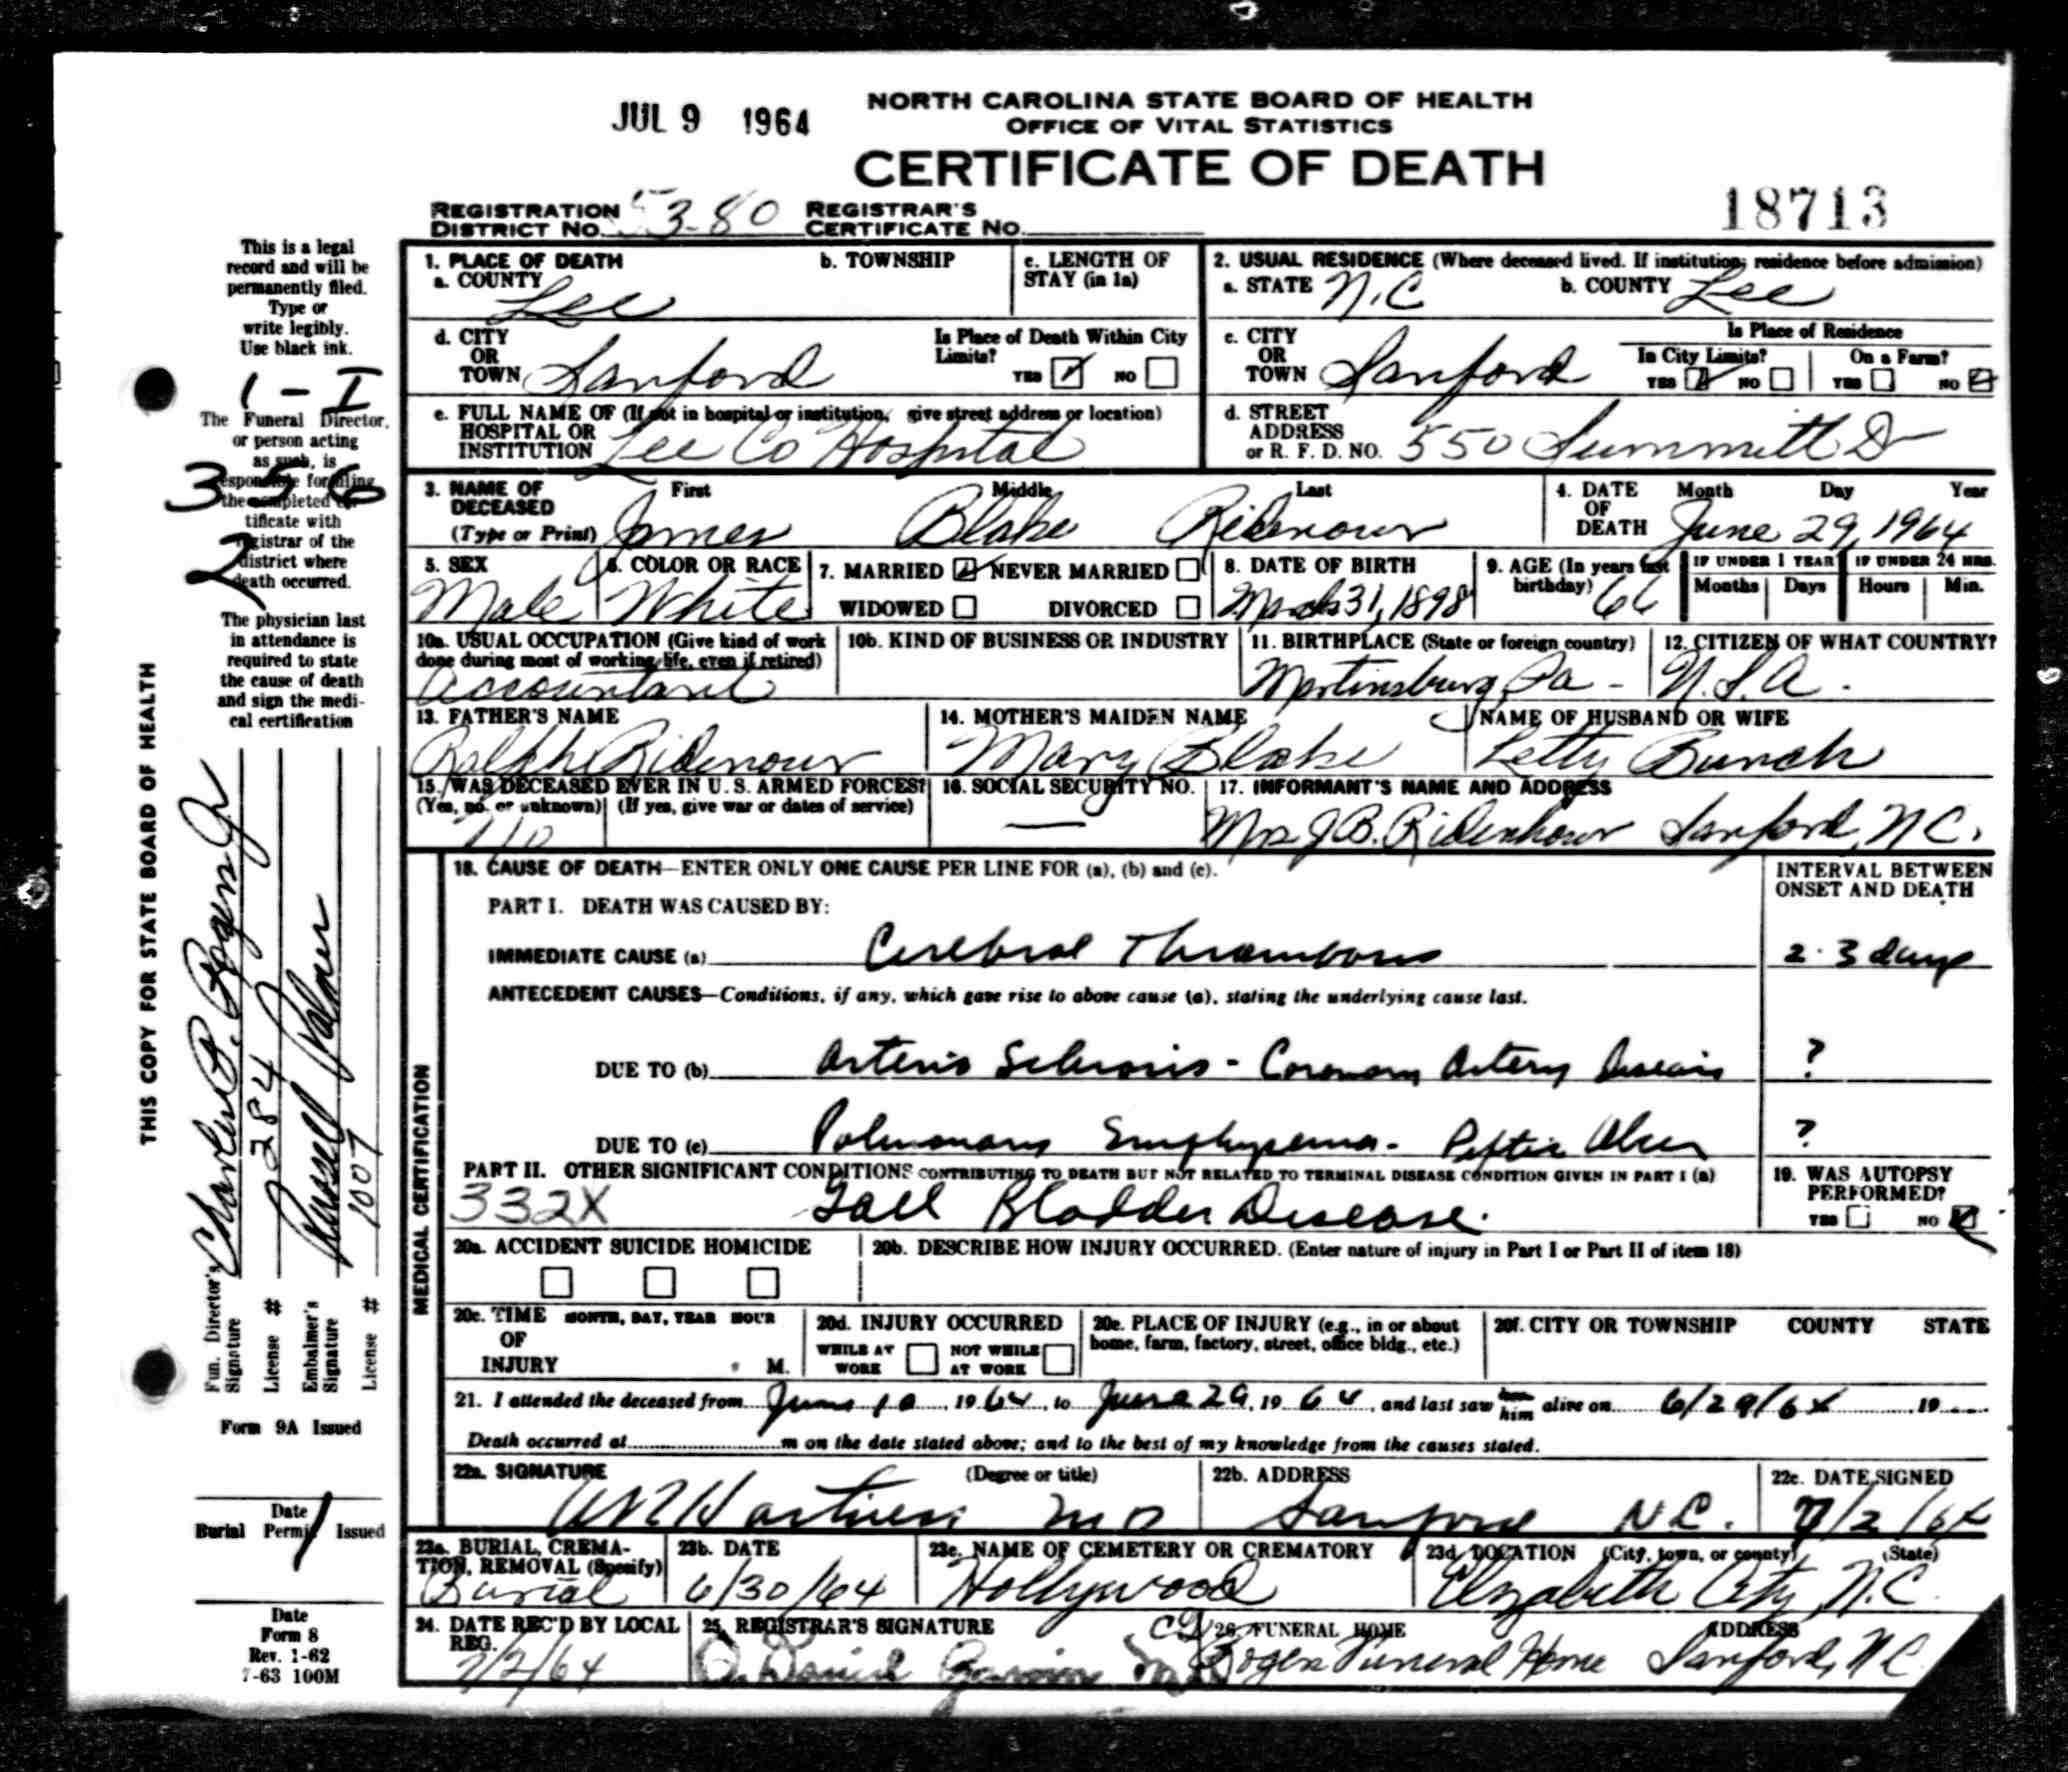 JUL 9 1964
NORTH CAROLINA STATE BOARD OF HEALTH
OFFICE OF VITAL STATISTICS
CERTIFICATE OF DEATH
18713
REGISTRATION DISTRICT NO. 53-80 REGISTRAR'S CERTIFICATE NO.
This is a legal
record and will be
permanently filed.
Type or
write legibly.
Use black ink.
1 - I
The Funeral Director,
or person acting
as such, is
responsible for filing
the completed cer-
tificate with
registrar of the
district where
death occurred.
356
2
The physician last
in attendance is
required to state
the cause of death
and sign the medi-
cal certification
THIS COPY FOR STATE BOARD OF HEALTH
Fun. Director's Signature Charles P. Rogers Jr
License # 2284
Embalmer's Signature Russell Palmer
License # 1007
Form 9A Issued
Date
Burial Permit Issued
1
Date
Form 8
Rev. 1-62
7-63 100M
1. PLACE OF DEATH
a. COUNTY Lee
b. TOWNSHIP
c. LENGTH OF STAY (in 1a)
2. USUAL RESIDENCE (Where deceased lived. If institution; residence before admission)
a. STATE N.C b. COUNTY Lee
d. CITY OR TOWN Sanford
Is Place of Death Within City Limits? YES NO
c. CITY OR TOWN Sanford
Is Place of Residence
In City Limits? YES NO
On a Farm? YES NO
e. FULL NAME OF HOSPITAL OR INSTITUTION (If not in hospital or institution, give street address or location) Lee Co Hospital
d. STREET ADDRESS or R. F. D. NO. 550 Summitt Dr
3. NAME OF DECEASED (Type or Print) First Middle Last
James Blake Ridenour
4. DATE OF DEATH Month Day Year
June 29, 1964
5. SEX Male
6. COLOR OR RACE White
7. MARRIED NEVER MARRIED
WIDOWED DIVORCED
8. DATE OF BIRTH March 31, 1898
9. AGE (In years last birthday) 66
IF UNDER 1 YEAR Months Days
IF UNDER 24 HRS. Hours Min.
10a. USUAL OCCUPATION (Give kind of work done during most of working life, even if retired) Accountant
10b. KIND OF BUSINESS OR INDUSTRY
11. BIRTHPLACE (State or foreign country) Martinsburg, Pa -
12. CITIZEN OF WHAT COUNTRY? U.S.A.
13. FATHER'S NAME Ralph Ridenour
14. MOTHER'S MAIDEN NAME Mary Blake
NAME OF HUSBAND OR WIFE Letty Bunch
15. WAS DECEASED EVER IN U. S. ARMED FORCES?
(Yes, no. or unknown) (If yes, give war or dates of service)
No
16. SOCIAL SECURITY NO. —
17. INFORMANT'S NAME AND ADDRESS
Mrs J B. Ridenhour Sanford, N.C.
MEDICAL CERTIFICATION
18. CAUSE OF DEATH—ENTER ONLY ONE CAUSE PER LINE FOR (a), (b) and (c).
INTERVAL BETWEEN ONSET AND DEATH
PART I. DEATH WAS CAUSED BY:
IMMEDIATE CAUSE (a) Cerebral Thrombosis 2-3 days
ANTECEDENT CAUSES—Conditions, if any, which gave rise to above cause (a), stating the underlying cause last.
DUE TO (b) Arterio Sclerosis - Coronary Artery Disease ?
DUE TO (c) Pulmonary Emphysema - Peptic Ulcer ?
PART II. OTHER SIGNIFICANT CONDITIONS CONTRIBUTING TO DEATH BUT NOT RELATED TO TERMINAL DISEASE CONDITION GIVEN IN PART I (a)
332X Gall Bladder Disease.
19. WAS AUTOPSY PERFORMED?
YES NO
20a. ACCIDENT SUICIDE HOMICIDE
20b. DESCRIBE HOW INJURY OCCURRED. (Enter nature of injury in Part I or Part II of item 18)
20c. TIME OF INJURY MONTH, DAY, YEAR HOUR M.
20d. INJURY OCCURRED
WHILE AT WORK NOT WHILE AT WORK
20e. PLACE OF INJURY (e.g., in or about home, farm, factory, street, office bldg., etc.)
20f. CITY OR TOWNSHIP COUNTY STATE
21. I attended the deceased from June 10, 1964, to June 29, 1964, and last saw him alive on 6/29/64 19
Death occurred at m on the date stated above; and to the best of my knowledge from the causes stated.
22a. SIGNATURE (Degree or title)
MD
22b. ADDRESS Sanford N.C.
22c. DATE SIGNED 7/2/64
23a. BURIAL, CREMATION, REMOVAL (Specify) Burial
23b. DATE 6/30/64
23c. NAME OF CEMETERY OR CREMATORY Hollywood
23d. LOCATION (City, town, or county) (State)
Elizabeth City, N.C.
24. DATE REC'D BY LOCAL REG. 7/2/64
25. REGISTRAR'S SIGNATURE
26. FUNERAL HOME ADDRESS
Rogers Funeral Home Sanford, N.C.